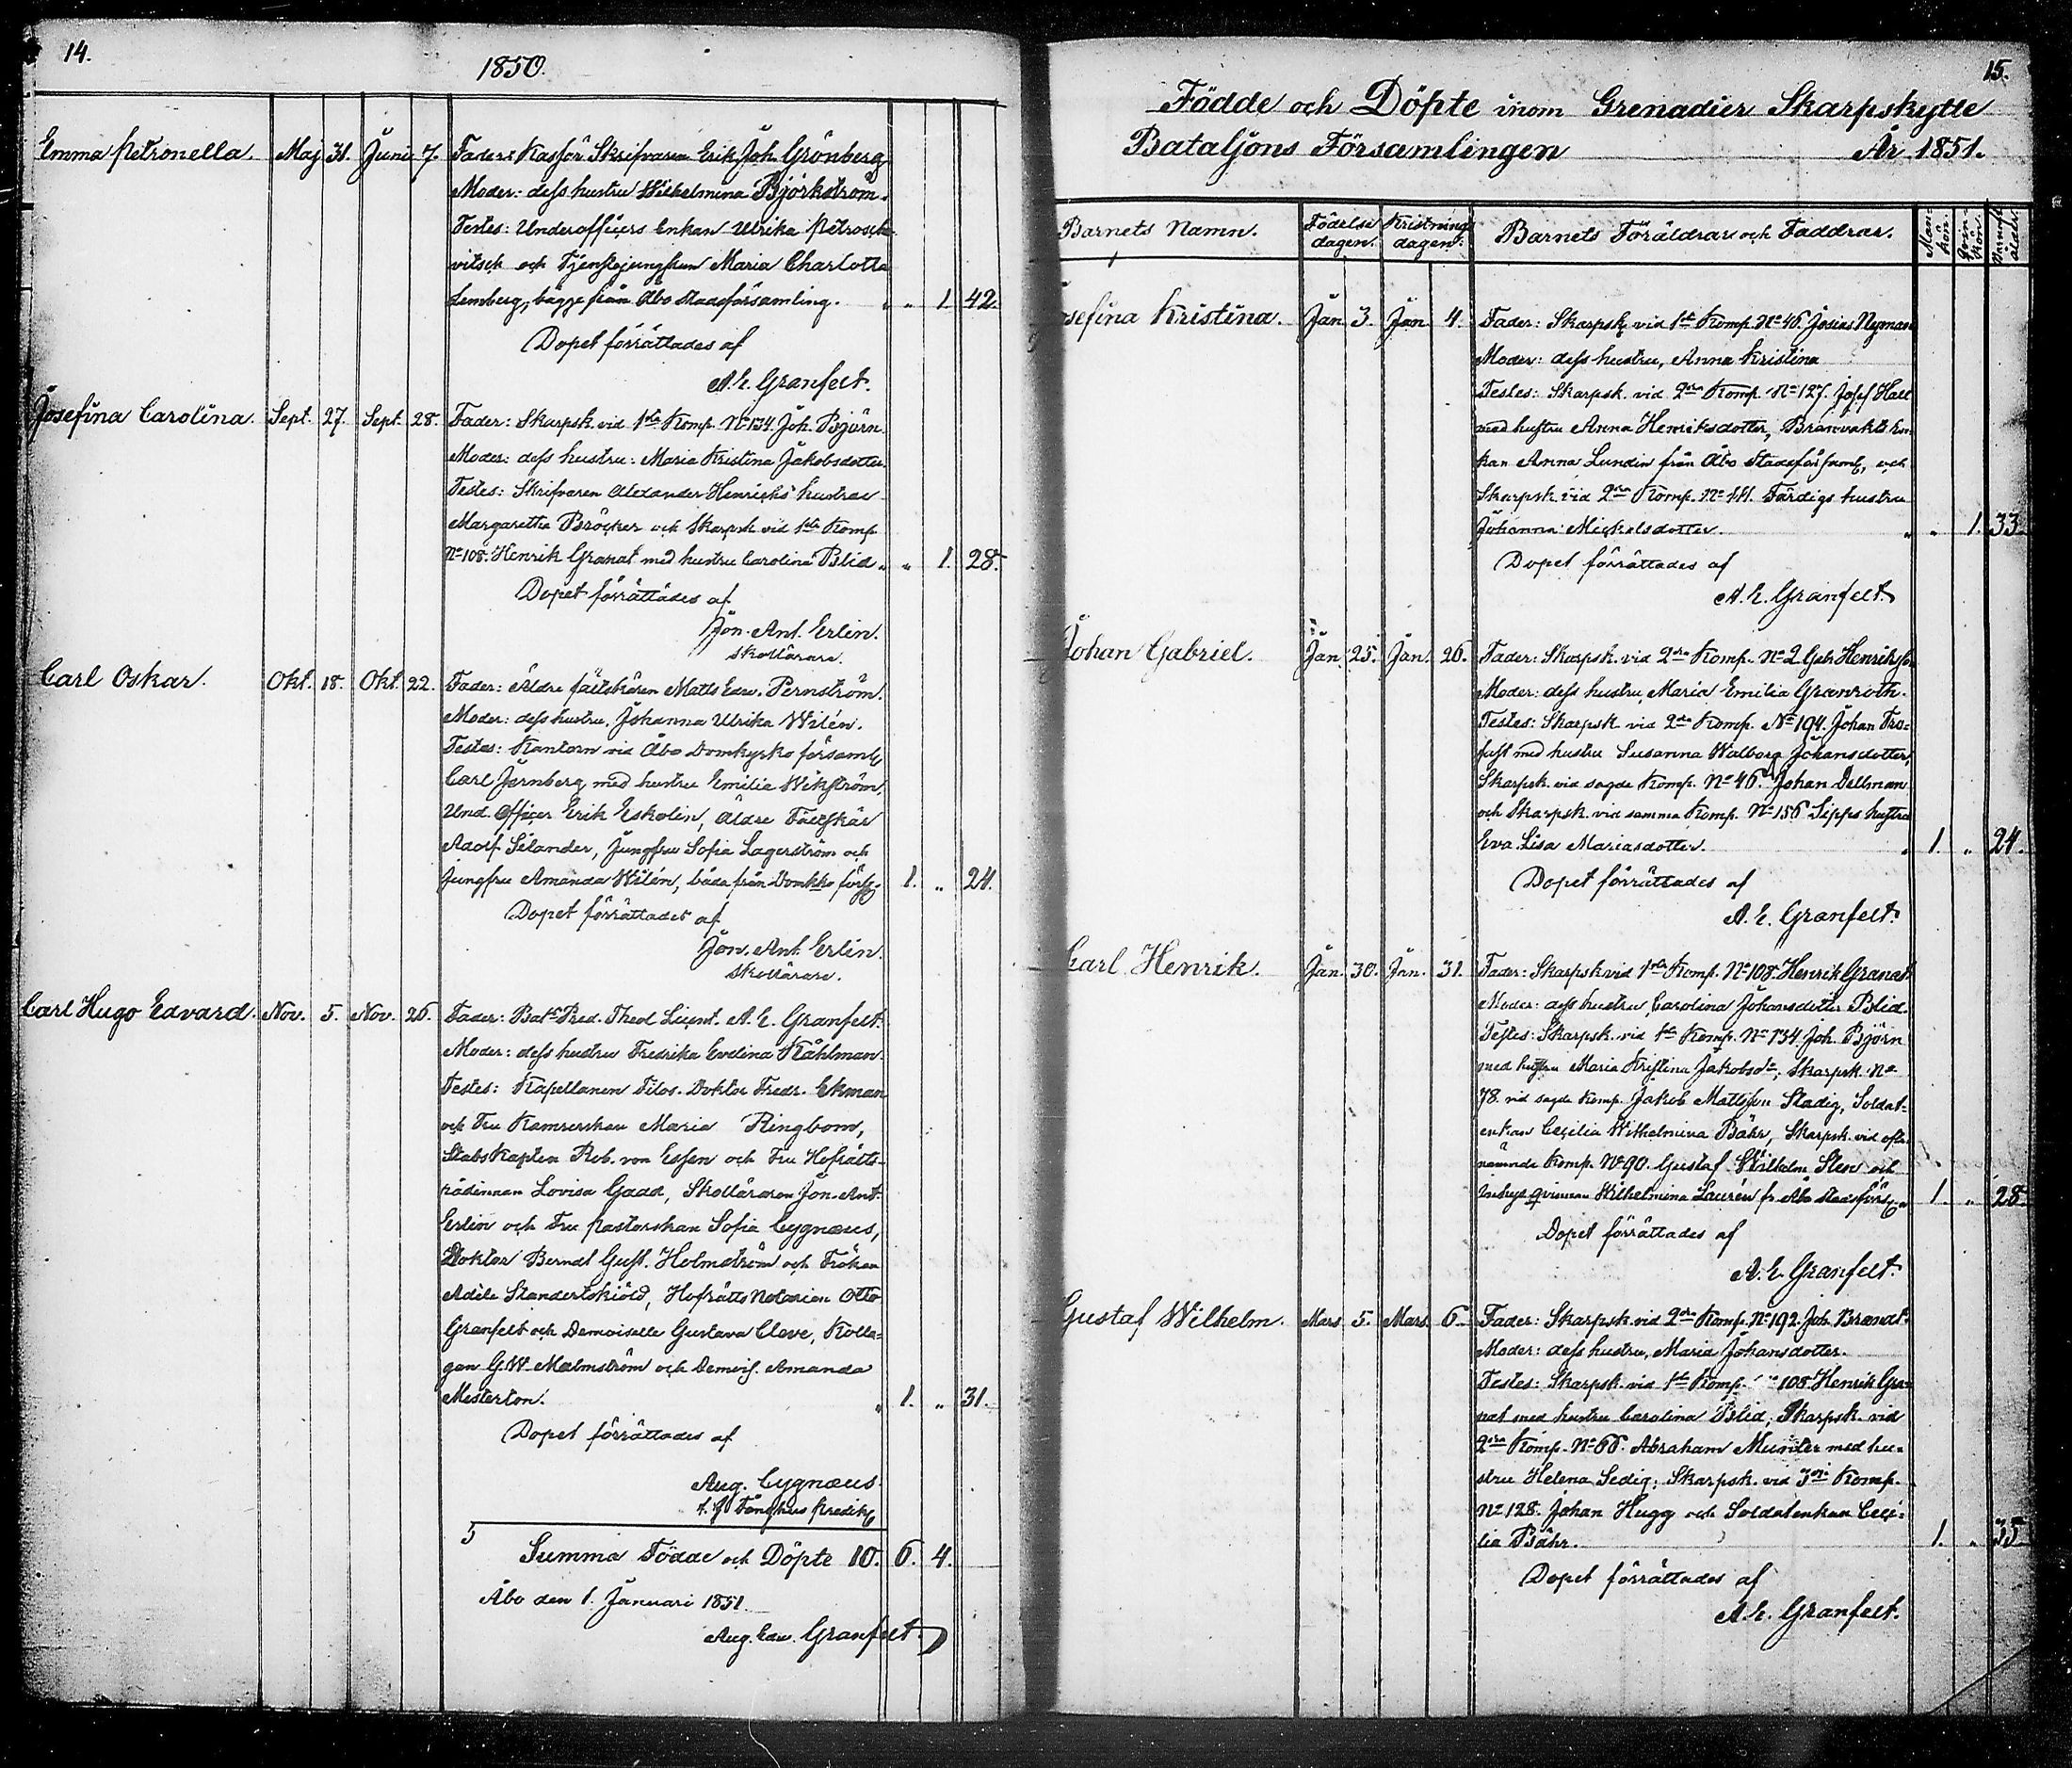 14.
1850.
Emma Petronella. Maj 31. Juni 7. Fader: Kassör Skrifvaren Erik Joh. Grönberg
Moder: dess hustru Wilhelmina Björkström.
Testes: Underofficers Enkan Ulrika Petrosche-
vitsch och Tjenstejungfrun Maria Charlotta
Lemberg, bägge från Åbo stadsförsamling. „ „ 1 42.
Dopet förrättades af
A. E. Granfelt.
Josefina Carolina. Sept. 27. Sept. 28. Fader: Skarpsk. vid 1sta Komp. No 134. Joh. Björn
Moder: dess hustru: Maria Kristina Jakobsdotter.
Testes: Skrifvaren Alexander Henrichs hustru
Margaretha Bröcker och Skarpsk vid 1sta Komp
No 108. Henrik Granat med hustru Carolina Blid „ „ 1. 28.
Dopet förrättades af
Jon. Ant. Erlin.
Skollärare.
Carl Oskar. Okt. 18. Okt. 22. Fader: Äldre fältskären Matts Edv. Pernström.
Moder: dess hustru, Johanna Ulrika Wilén.
Testes: Kantorn vid Åbo Domkyrko församl.
Carl Jernberg med hustru Emilia Wikström,
Und. Officer Erik Eskolin, äldre Fältskär
Adolf Silander, Jungfru Sofia Lagerström och
Jungfru Amanda Wilén, båda från Domkko förs. 1. „ 24.
Dopet förrättades af
Jon. Ant. Erlin.
Skollärare.
Carl Hugo Edvard. Nov. 5. Nov. 26. Fader: Bats Pred. Theol Licent. A. E. Granfelt.
Moder: dess hustru Fredrika Evelina Råhlman
Testes: Kapellanen Filos. Doktor Fredr. Ekman
och Fru Kamrerskan Maria Ringbom,
Stabskapten Rob. von Essen och Fru Hofrätts-
rådinnan Lovisa Gadd, Skolläraren Jon. Ant.
Erlin och Fru Pastorskan Sofia Cygnæus,
Doktor Berndt Gust. Holmström och Fröken
Adèle Standertskiöld, Hofrätts Notarien Otto
Granfelt och Demoiselle Gustava Cleve, Kolle-
gan G W Malmström och Demois. Amanda
Mesterton. „ 1. „ 31.
Dopet förrättades af
Aug. Cygnæus
t. f. Fånghus Predik.
5
Summa Födde och Döpte 10. 6. 4.
Åbo den 1. Januari 1851.
Aug. Edv. Granfelt.
15.
Födde och Döpte inom Grenadier Skarpskytte
Bataljons Församlingen År 1851.
Barnets Namn. Födelse dagen. Kristnings dagen. Barnets Föräldrar och Faddrar. Man-kön. Qvin-kön. Barnaf. ålder.
Josefina Kristina. Jan. 3. Jan. 4. Fader: Skarpsk vid 1sta Komp. No 46. Josias Nyman
Moder: dess hustru, Anna Kristina
Testes: Skarpsk. vid 2dra Komp. No 127. Josef Hall
med hustru Anna Henriksdotter, Brandvakts En-
kan Anna Lundin från Åbo Stadsförsaml., och
Skarpsk. vid 2dra Komp. No 141. Färdigs hustru
Johanna Mickelsdotter. „ „ 1. 33.
Dopet förrättades af
A. E. Granfelt.
Johan Gabriel. Jan. 25. Jan. 26. Fader: Skarpsk. vid 2dra Komp. No 2 Gabr. Henrikss.
Moder: dess hustru Maria Emilia Granroth.
Testes: Skarpsk vid 2dra Komp. No 194. Johan Tro-
fast med hustru Susanna Walborg Johansdotter,
Skarpsk. vid sagde Komp. No 46. Johan Dellman
och Skarpsk. vid samma Komp. No 156 Sipps hustru
Eva Lisa Mariasdotter. „ 1. „ 24.
Dopet förrättades af
A. E. Granfelt.
Carl Henrik. Jan. 30. Jan. 31. Fader: Skarpsk vid 1sta Komp. No 108. Henrik Granat.
Moder: dess hustru, Carolina Johansdotter Blid.
Testes: Skarpsk. vid 1sta Komp. No 134. Joh. Björn
med hustru Maria Kristina Jakobsdr, Skarpsk. No
78. vid sagde Komp. Jakob Mattsson Stadig, Soldat-
enkan Cecilia Wilhelmina Bähr, Skarpsk. vid ofta-
nämnde Komp. No 90. Gustaf Wilhelm Sten och
Inhys qvinnan Wilhelmina Laurén fr. Åbo stadsförs. „ 1. „ 28.
Dopet förrättades af
A. E. Granfelt.
Gustaf Wilhelm. Mars 5. Mars 6. Fader: Skarpsk. vid 2dra Komp. No 192. Joh. Brandt.
Moder: dess hustru, Maria Johansdotter.
Testes: Skarpsk. vid 1sta Komp. 108. Henrik Gra-
nat med hustru Carolina Blid; Skarpsk. vid
2dra Komp. No 66. Abraham Munter med hu-
stru Helena Sedig; Skarpsk. vid 3dje Komp.
No 128. Johan Hugg och Soldatenkan Ceci-
lia Bähr. 1. „ 35.
Dopet förrättades af
A. E. Granfelt.